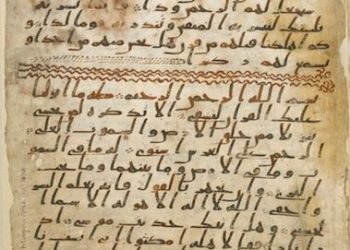 بلسنك لتبشر به المتقين وتنذر به قوما لدا و
كم اهلكنا قبلهم من قرن هل تحس منهم من احد او
تسمع لهم ركزا
بسم الله الرحمن الرحيم طه ما انزلنا
عليك القرن لتشقى الا تذكرة لمن يخشى
تنزيلا ممن خلق الارض والسموت العلى
الرحمن على العرش استوى له ما في السمو
ت وما في الارض وما بينهما وما تحت
الثرى وان تجهر بالقول فانه يعلم السر
واخفى الله لا اله الا هو له الاسما ال
حسنى وهل اتيك حديث موسى اذ ر
ا نارا فقال لاهله امكثوا اني انست